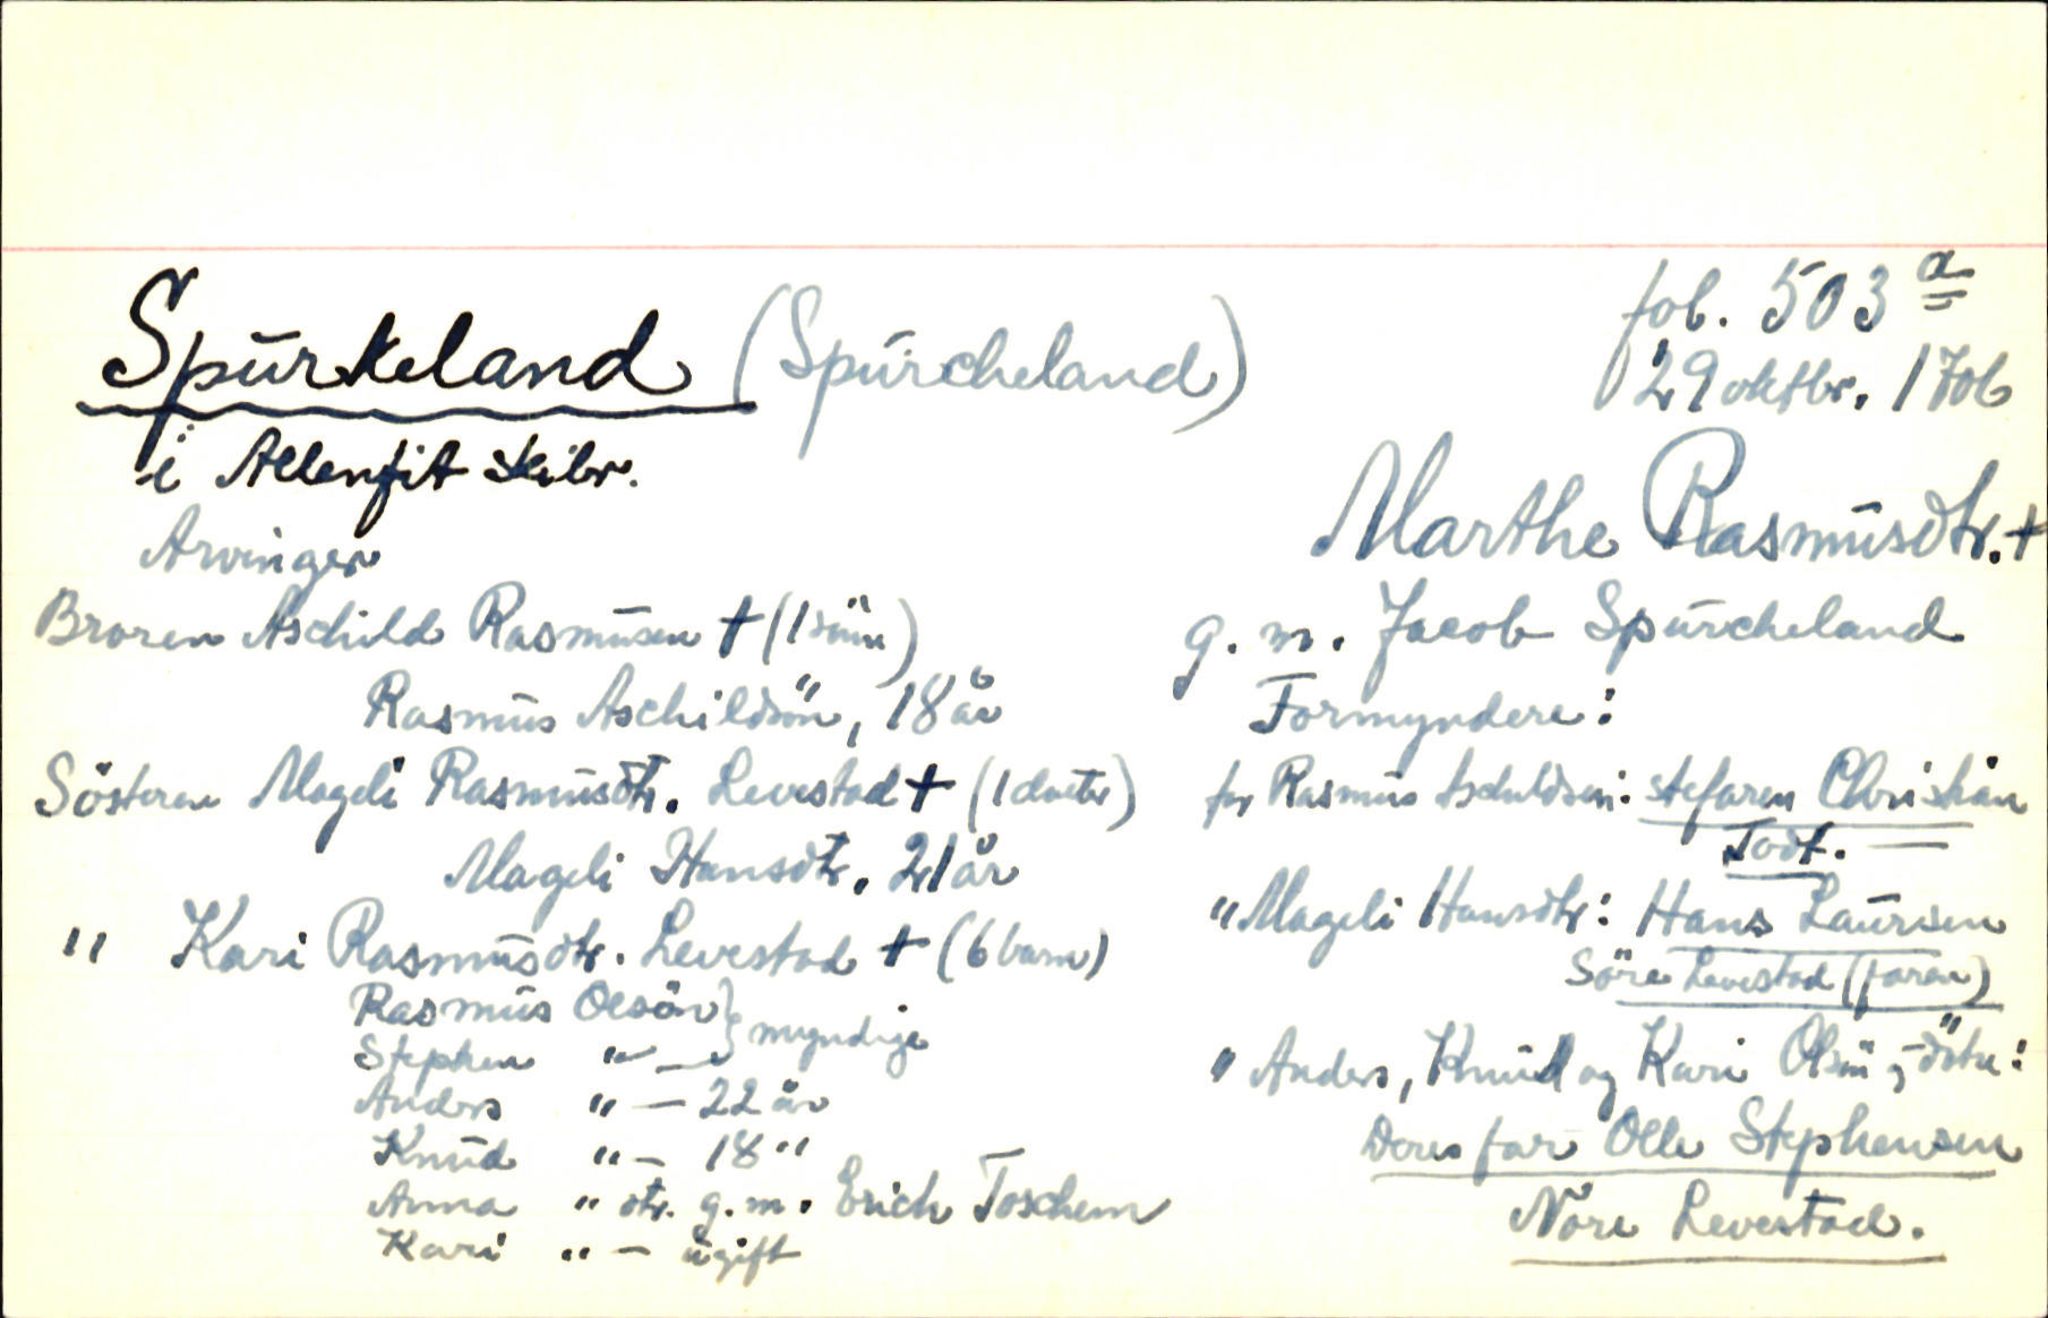 Spurkeland (Spurcheland)
i Allenfit skibr.
fol. 503 a
29 oktbr. 1706
Marthe Rasmusdtr. †
g. m. Jacob Spurcheland
Arvinger
Broren Aschild Rasmusen † (1 sönn)
Rasmus Aschildsön, 18 år
Sösteren Mageli Rasmusdtr. Levestad † (1 datter)
Mageli Hansdtr. 21 år
" Kari Rasmusdtr. Levestad † (6 barn)
Rasmus Olsön } myndige
Stephen " —
Anders " — 22 år
Knud " — 18 "
Anna " dtr. g. m. Erich Toschem
Kari " — ugift
Formyndere:
for Rasmus Aschildsön: stefaren Christian
Todt.
" Mageli Hansdtr: Hans Laursen
Söre Levestad (faren)
" Anders, Knud og Kari Olsön, -döttre:
Deres far Olle Stephensen
Nore Levestad.